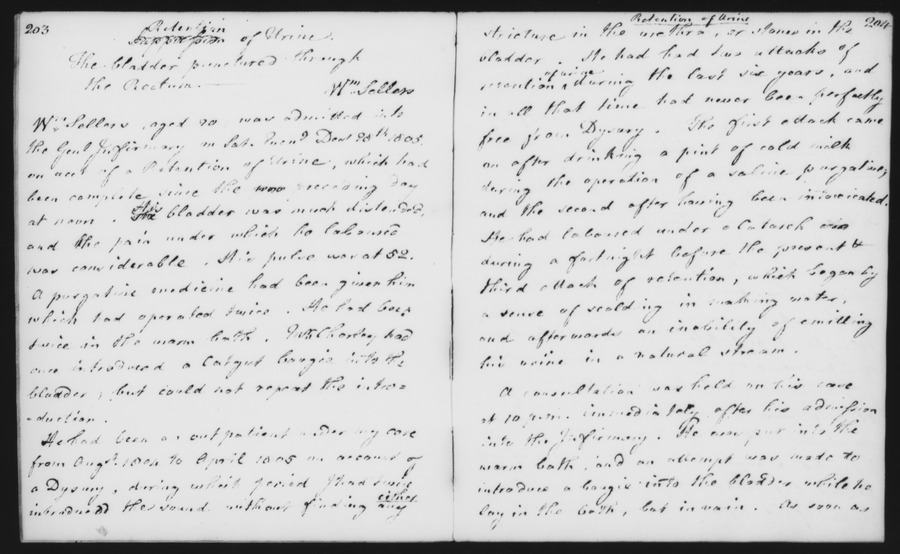 203
Retention
Suppression of Urine.
The bladder punctured through
the Rectum.
Wm Sellers
Wm Sellers, aged 70, was admitted into
the Genl Infirmary on Sat. Decr 28th 1805.
on acct of a Retention of Urine, which had
been complete since the preceding day
at noon. His bladder was much distended,
and the pain under which he laboured
was considerable. His pulse was at 52.
A purgative medicine had been given him
which had operated twice. He had been
twice in the warm bath. Mr Chorley had
once introduced a Catgut bougie into the
bladder; but could not repeat the intro-
-duction.
He had been an out patient under my care
from Augt. 1804 to April 1805 on account of
a Dysury, during which period I had twice
introduced the sound without finding either any
Retention of Urine
204
stricture in the urethra, or stones in the
bladder. He had had two attacks of
retention of urine during the last six years, and
in all that time had never been perfectly
free from Dysury. The first attack came
on after drinking a pint of cold milk
during the operation of a saline purgative;
and the second after having been intoxicated.
He had laboured under a Catarrh
during a fortnight before the present &
third attack of retention, which began by
a sense of scalding in making water,
and afterwards an inability of emitting
his urine in a natural stream.
A consultation was held on his case
at 10 p.m. immediately after his admission
into the Infirmary. He was put into the
warm bath, and an attempt was made to
introduce a bougie into the bladder while he
lay in the bath, but in vain. As soon as